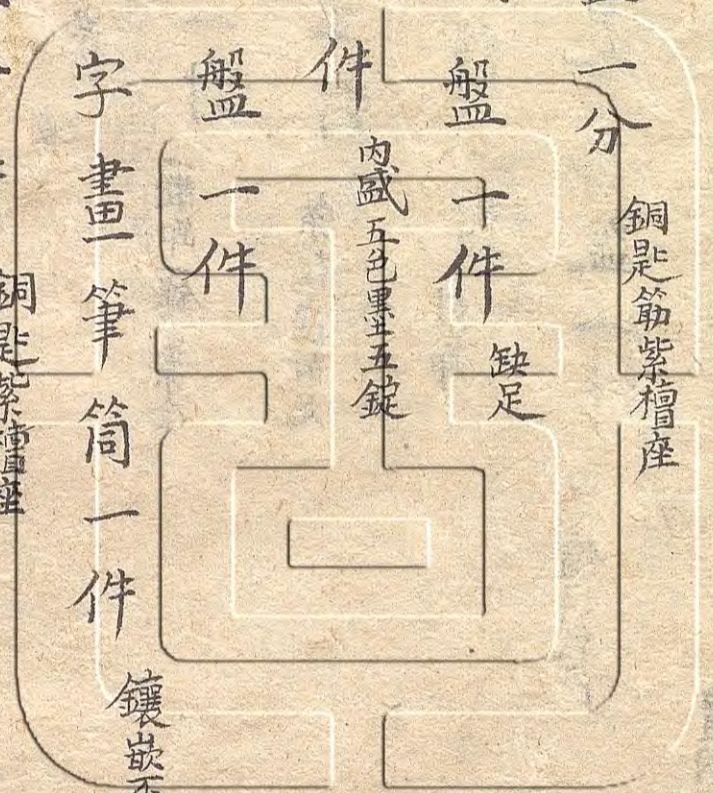 一分
銅匙筯紫檀座
盤一件
缺足
件
內盛五色墨五錠
盤一件
字畫筆筒一件
鑲嵌不
銅匙紫檀座